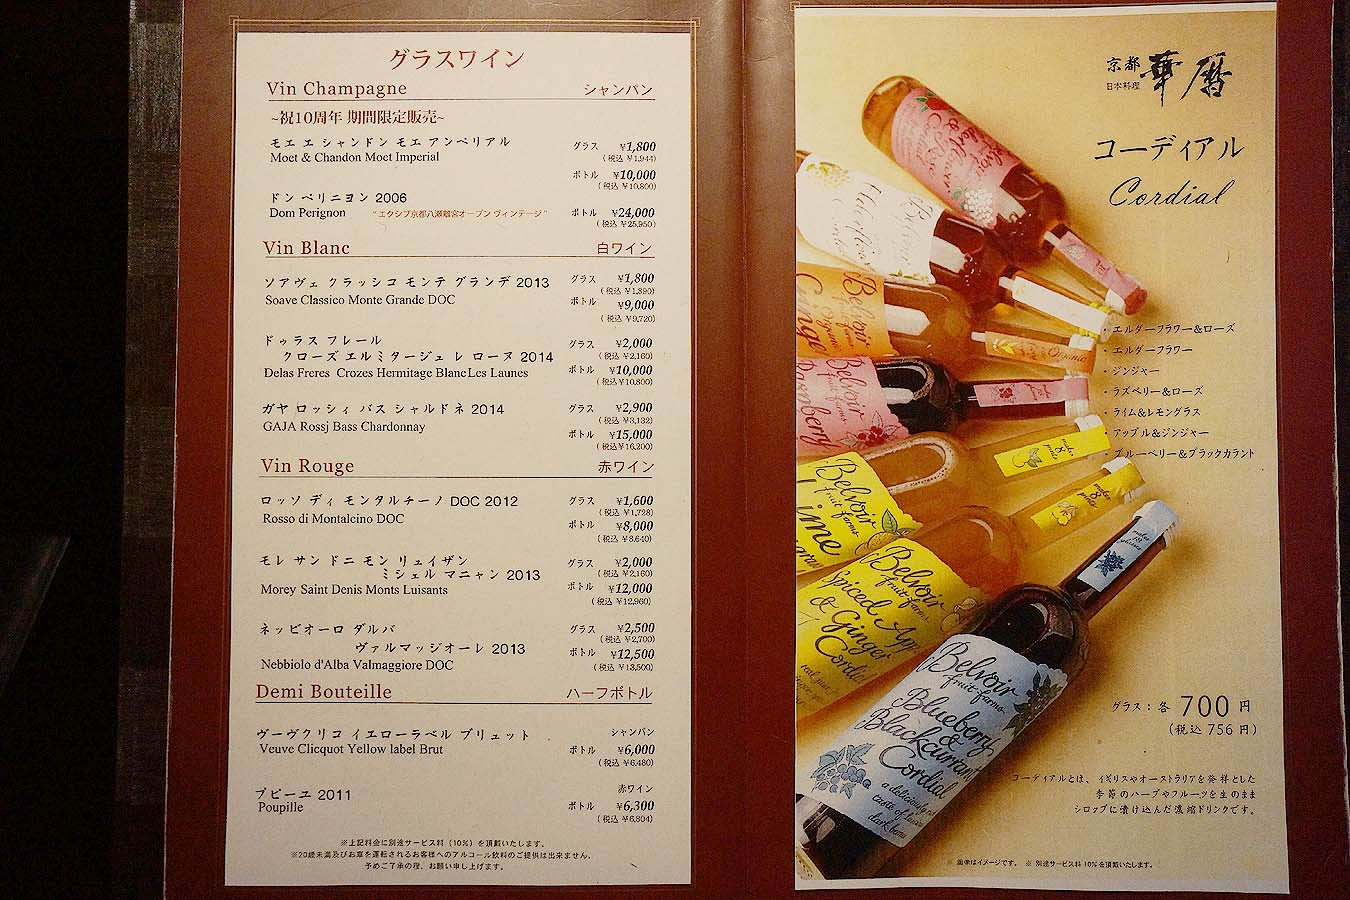 グラスワイン
Vin Champagne シャンパン
~祝10周年 期間限定販売~
モエ エ シャンドン モエ アンペリアル グラス ¥1,800
Moet & Chandon Moet Imperial (税込 ¥1,944)
ボトル ¥10,000
(税込 ¥10,800)
ドン ペリニヨン 2006
Dom Perignon "エクシブ京都八瀬離宮オープン ヴィンテージ" ボトル ¥24,000
(税込 ¥25,950)
Vin Blanc 白ワイン
ソアヴェ クラッシコ モンテ グランデ 2013 グラス ¥1,800
Soave Classico Monte Grande DOC (税込 ¥1,890)
ボトル ¥9,000
(税込 ¥9,720)
ドゥラス フレール グラス ¥2,000
クローズ エルミタージュ レ ローヌ 2014 (税込 ¥2,160)
Delas Freres Crozes Hermitage Blanc Les Launes ボトル ¥10,000
(税込 ¥10,800)
ガヤ ロッシィ バス シャルドネ 2014 グラス ¥2,900
GAJA Rossj Bass Chardonnay (税込 ¥3,132)
ボトル ¥15,000
(税込 ¥16,200)
Vin Rouge 赤ワイン
ロッソ ディ モンタルチーノ DOC 2012 グラス ¥1,600
Rosso di Montalcino DOC (税込 ¥1,728)
ボトル ¥8,000
(税込 ¥8,640)
モレ サン ドニ モン リュイザン グラス ¥2,000
ミシェル マニャン 2013 (税込 ¥2,160)
Morey Saint Denis Monts Luisants ボトル ¥12,000
(税込 ¥12,960)
ネッビオーロ ダルバ グラス ¥2,500
ヴァルマッジオーレ 2013 (税込 ¥2,700)
Nebbiolo d'Alba Valmaggiore DOC ボトル ¥12,500
(税込 ¥13,500)
Demi Bouteille ハーフボトル
ヴーヴクリコ イエローラベル ブリュット シャンパン
Veuve Clicquot Yellow label Brut ボトル ¥6,000
(税込 ¥6,480)
プピーユ 2011 赤ワイン
Poupille ボトル ¥6,300
(税込 ¥6,804)
※上記料金に別途サービス料（10%）を頂戴いたします。
※20歳未満及びお車を運転されるお客様へのアルコール飲料のご提供は出来ません。
予めご了承の程、お願い申し上げます。
京都 華暦
日本料理
コーディアル
Cordial
・エルダーフラワー&ローズ
・エルダーフラワー
・ジンジャー
・ラズベリー&ローズ
・ライム&レモングラス
・アップル&ジンジャー
・ブルーベリー&ブラックカラント
Organic
Belvoir
fruit farms
Belvoir
fruit farms
Lime
Belvoir
fruit farms
Spiced App
& Ginger
Cordial
Belvoir
fruit farms
Blueberry
&
Blackcurrant
Cordial
a deliciously
taste of
dark
グラス：各 700 円
(税込 756 円)
コーディアルとは、イギリスやオーストラリアを発祥とした
季節のハーブやフルーツを生のまま
シロップに漬け込んだ濃縮ドリンクです。
※ 画像はイメージです。 ※ 別途サービス料 10%を頂戴いたします。